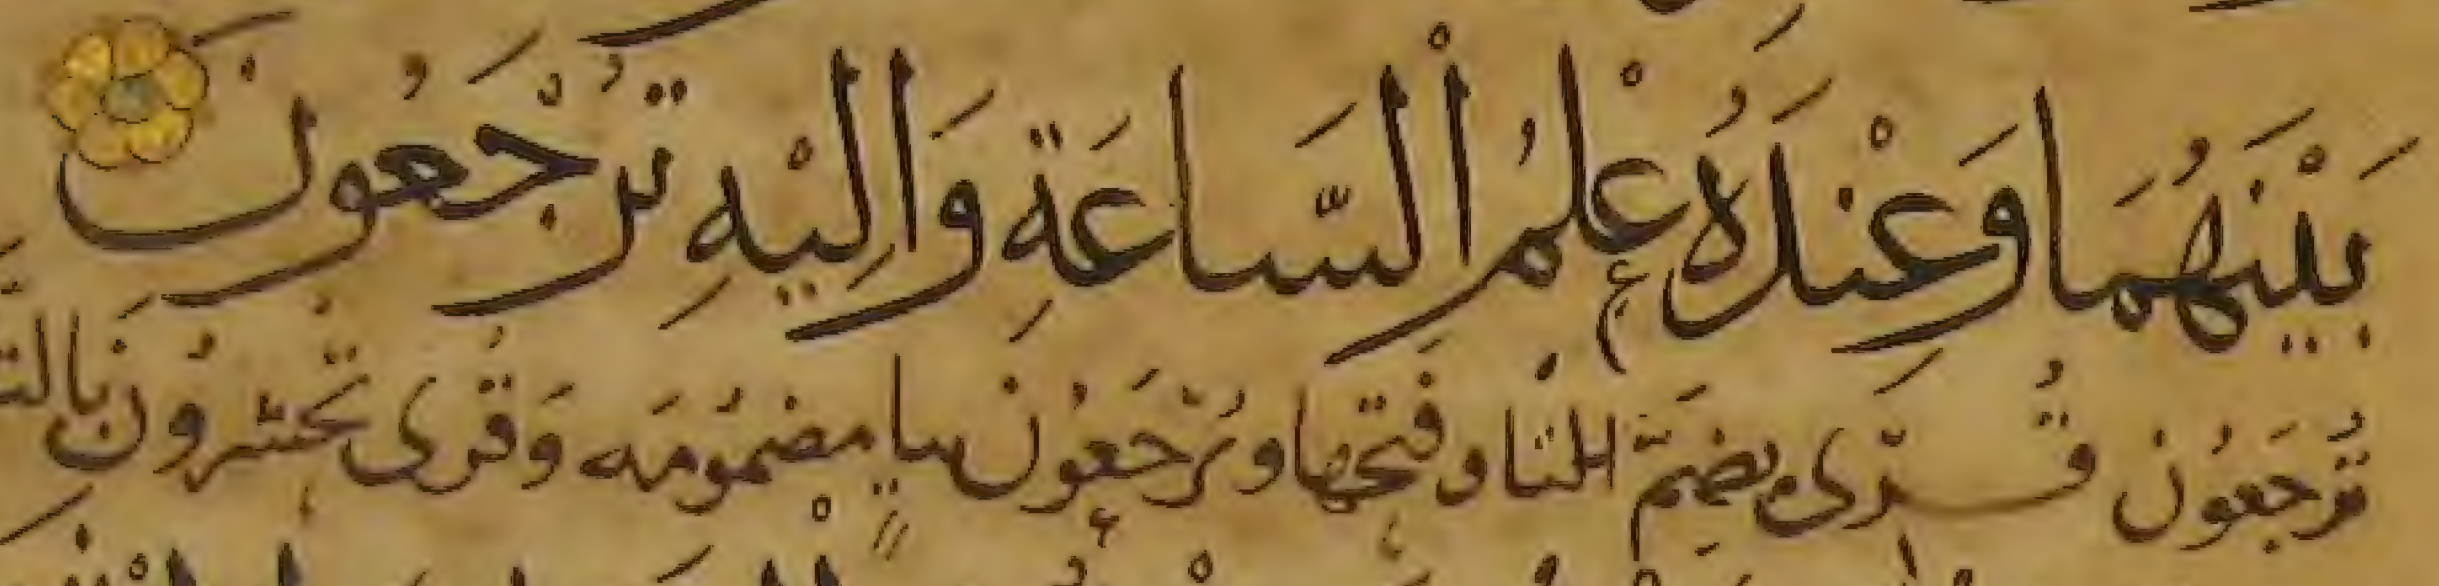 بَيْنَهُمَا وَعِنْدَهُ عِلْمُ اْلسَّاعَةِ وَاِلَيْهِ تُرْجَعُونَ
تُرجَعُون قُرِّى بضَمِّ التا وفَتحها وَيُرْجَعُون بياٍ مضمُومَه وَقُرى تَحْشرُونَ بالت